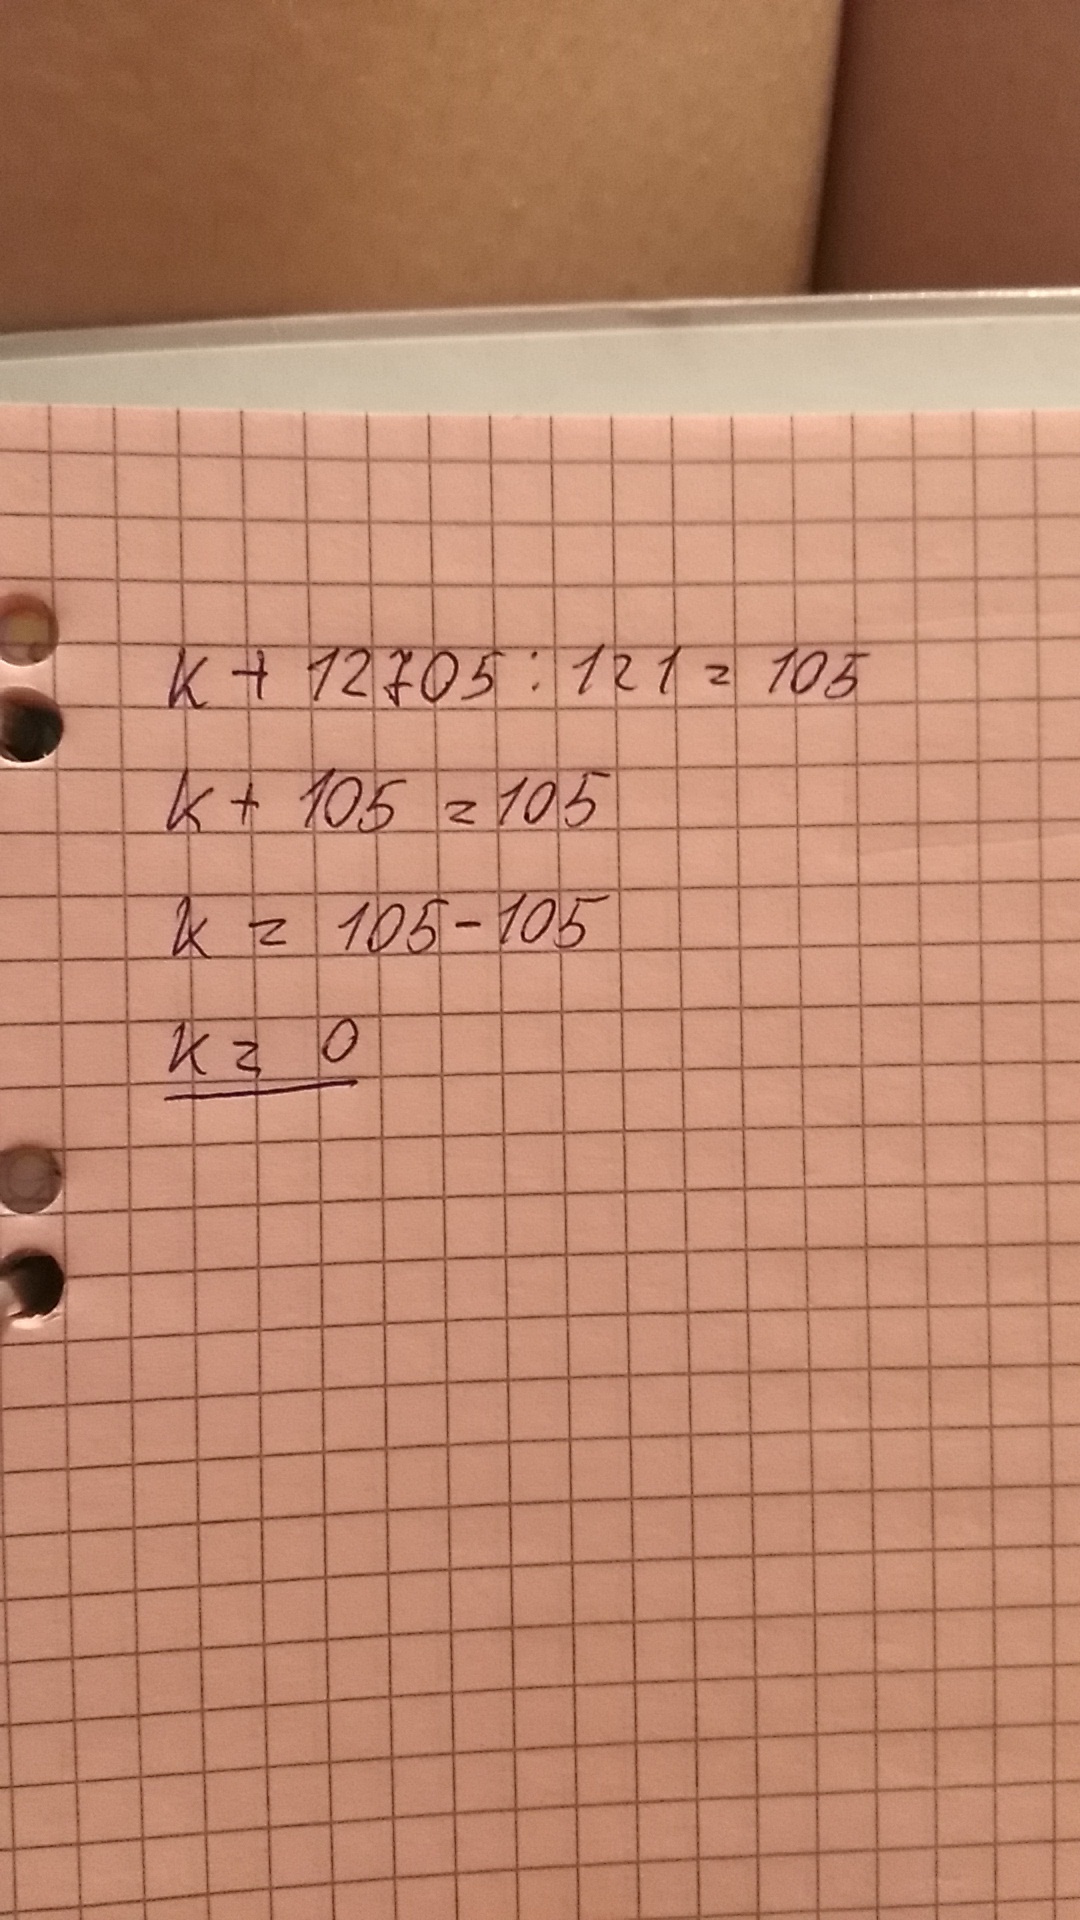 k + 12705 : 121 = 105
k + 105 = 105
k = 105 - 105
k = 0